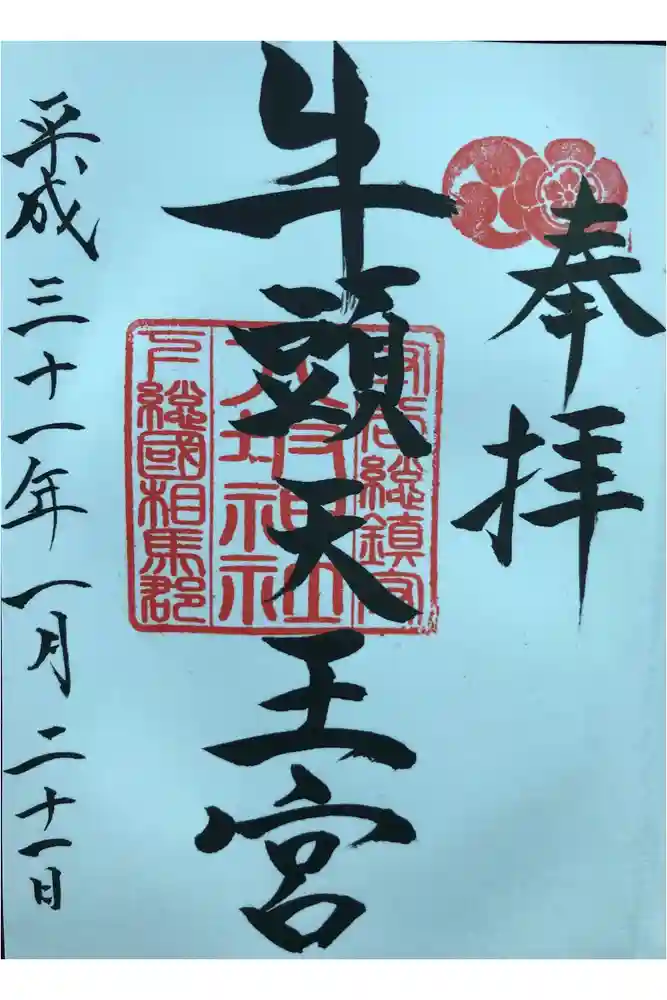 奉拝
守谷総鎮守
八坂神社
下総國相馬郡
牛頭天王宮
平成三十一年一月二十一日